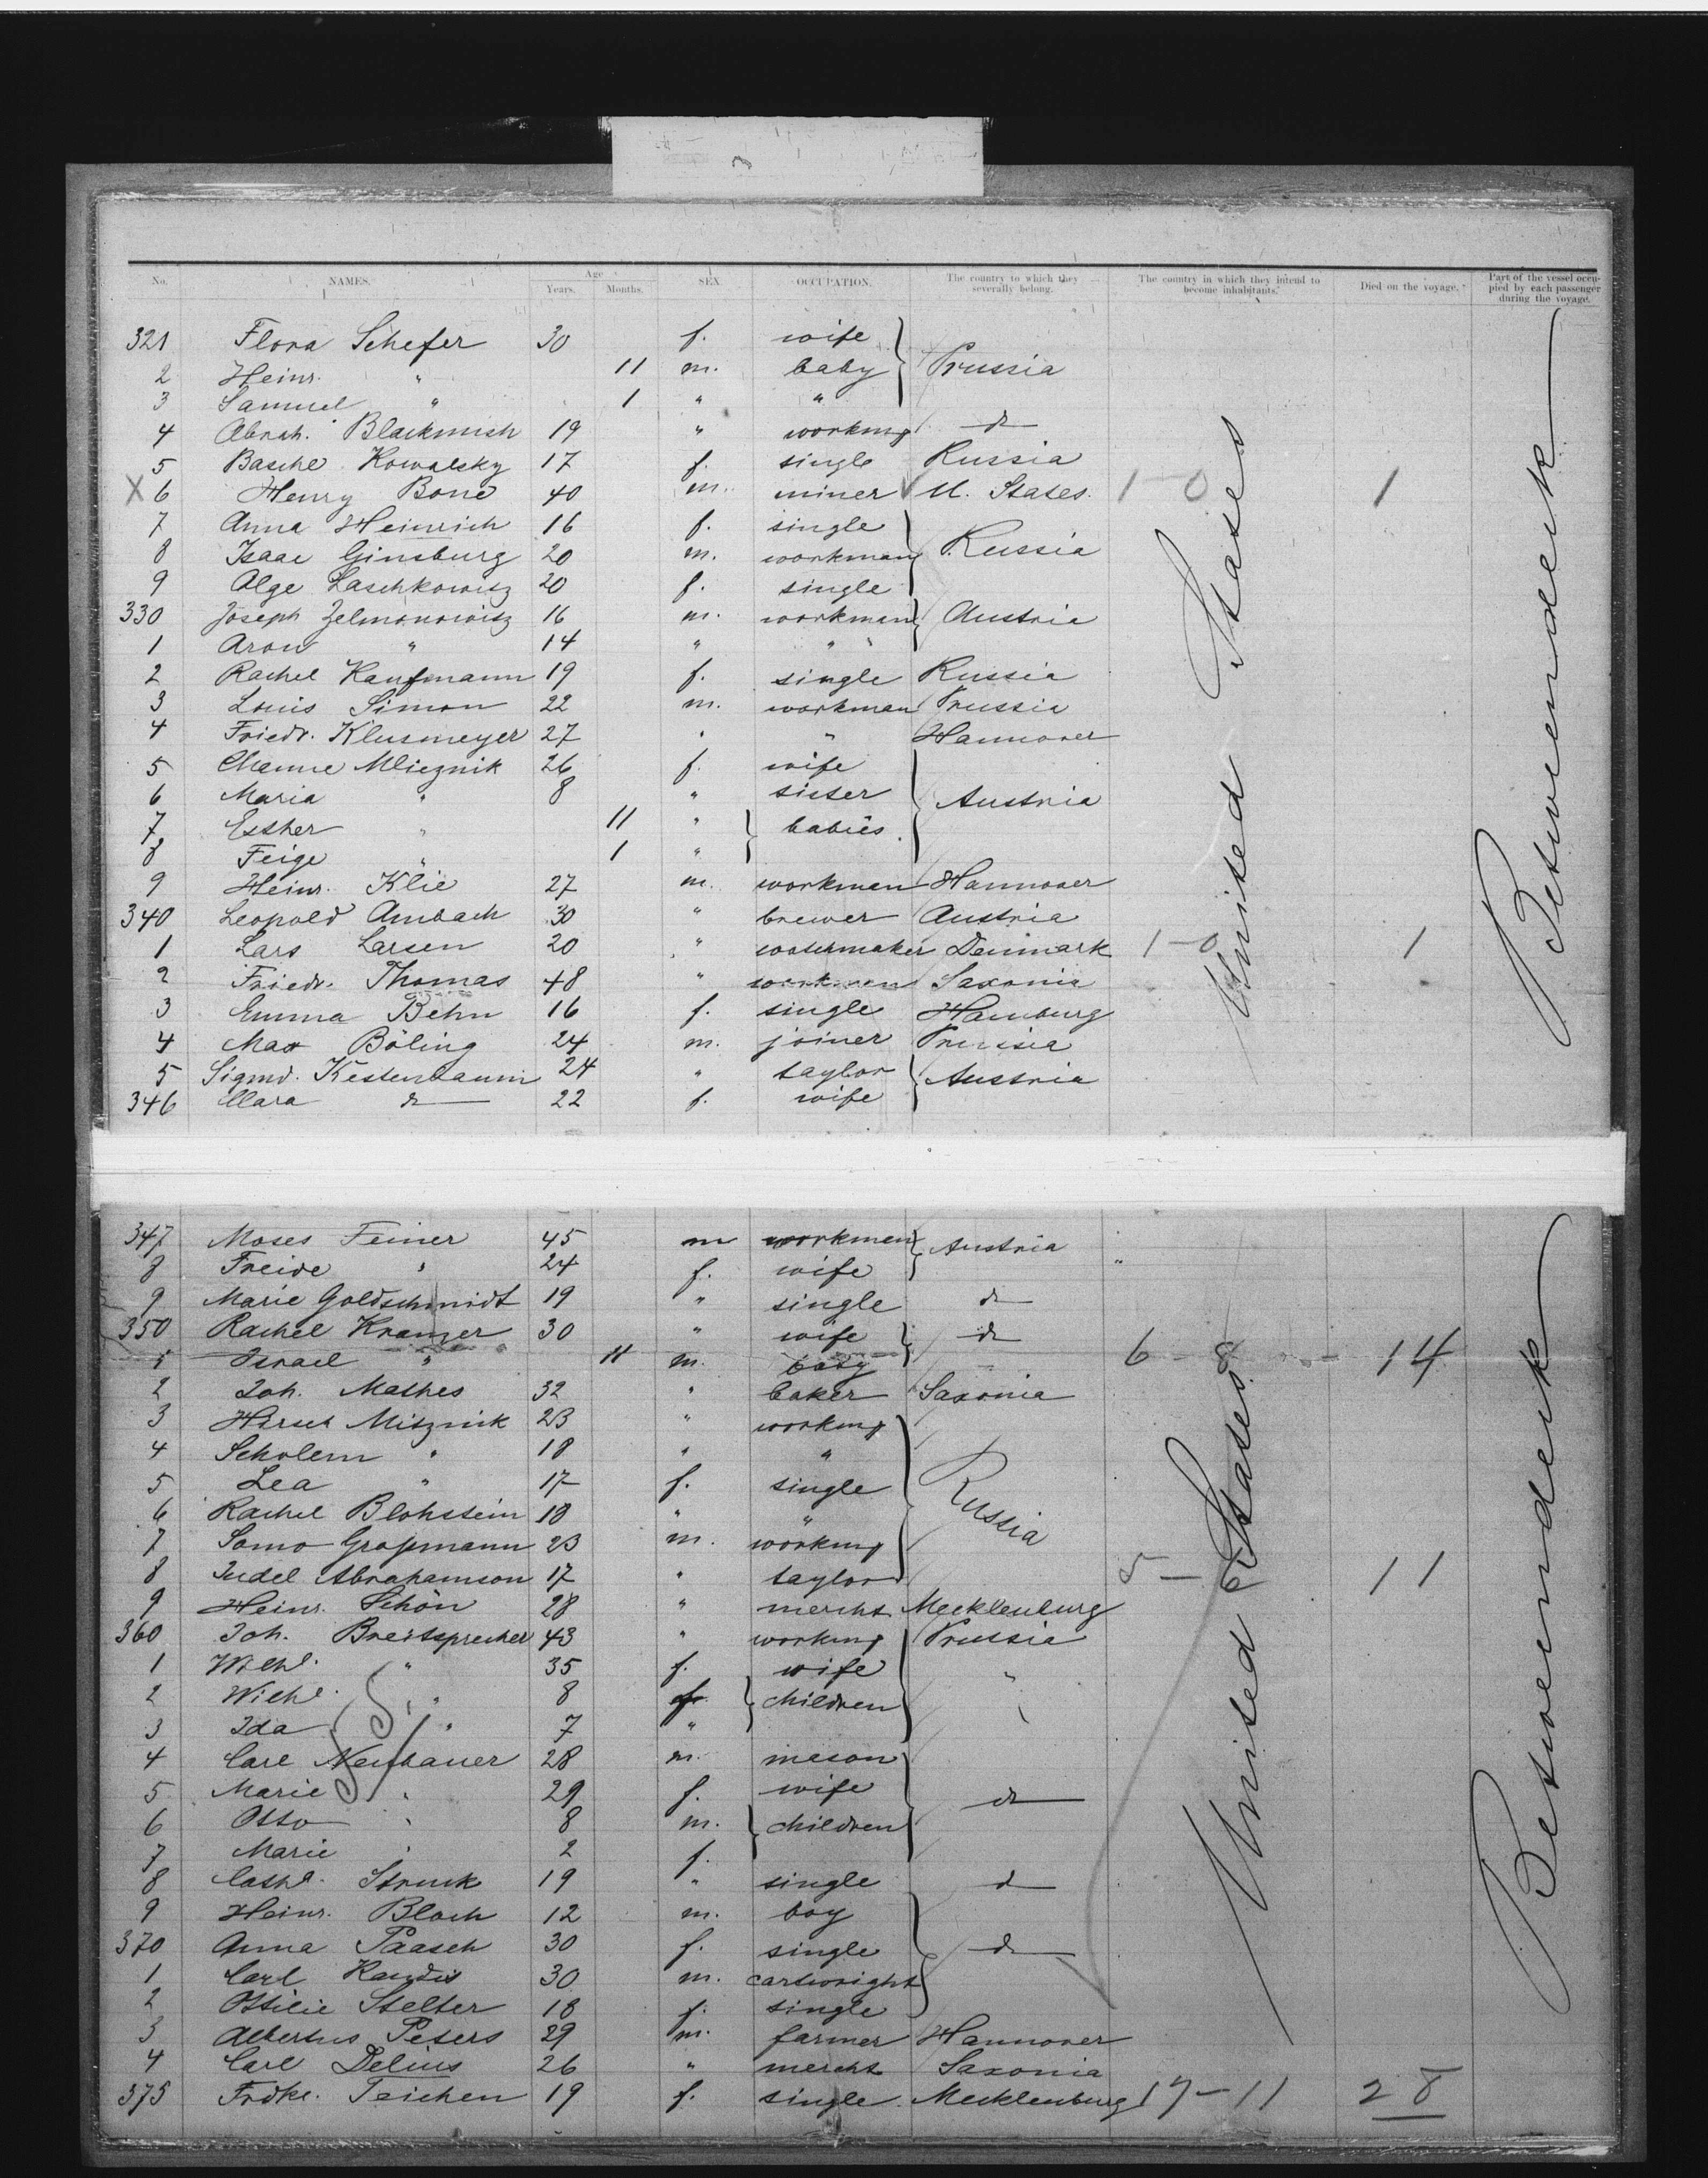 No. NAMES. Age Years. Months. SEX OCCUPATION. The country to which they severally belong. The country in which they intend to become inhabitants. Died on the voyage. Part of the vessel occupied by each passenger during the voyage.
321 Flora Schefer 30 f. wife
2 Heinr. " 11 m. baby Prussia
3 Samuel " 1 " "
4 Abrah. Blackmish 19 " workmn do
5 Basche Kowalsky 17 f. single Russia
X 6 Henry Bone 40 m. miner U. States. 1 - 0 1
7 Anna Heinrich 16 f. single
8 Isaac Ginsburg 20 m. workman Russia
9 Alge Laschkowitz 20 f. single
330 Joseph Zelmonowitz 16 m. workman Austria
1 Aron " 14 " "
2 Rachel Kaufmann 19 f. single Russia
3 Louis Simon 22 m. workman Prussia
4 Friedr. Klusmeyer 27 " " Hannover
5 Channe Mlieznik 26 f. wife
6 Maria " 8 " sister Austria
7 Esther " 11 " babies.
8 Feige " 1 "
9 Heinr. Klie 27 m. workman Hannover
340 Leopold Ambach 30 " brewer Austria
1 Lars Larsen 20 " watchmaker Denmark 1 - 0 1
2 Friedr. Thomas 48 " workman Saxonia
3 Emma Behn 16 f. single Hamburg
4 Max Böling 24 m. joiner Prussia
5 Sigmd. Kestenbaum 24 " taylor Austria
346 Clara do 22 f. wife
United States
Betweendeck
347 Moses Feiner 45 m workman Austria "
8 Freide " 24 f. wife
9 Marie Goldschmidt 19 " single do
350 Rachel Kramer 30 " wife do
1 Israel " 11 m. baby 6 - 8 - 14
2 Joh. Mathes 32 " baker Saxonia
3 Hirsch Mitznik 23 " workmn
4 Scholem " 18 " "
5 Lea " 17 f. single Russia
6 Rachel Blohstein 18 " "
7 Somo Grossmann 23 m. workmn
8 Judel Abrahamson 17 " taylor 5 - 6 11
9 Heinr. Schön 28 " mercht Mecklenburg
360 Joh. Breitsprecher 43 " workmn Prussia
1 Wilhl. " 35 f. wife "
2 Wilhl. " 8 f. children
3 Ida " 7 "
4 Carl Neubauer 28 m. mason
5 Marie " 29 f. wife do
6 Otto " 8 m. children
7 Marie " 2 f.
8 Cathl. Struck 19 " single do
9 Heinr. Bloch 12 m. boy
370 Anna Paasch 30 f. single do
1 Carl 30 m. cartwright
2 Ottilie Stelter 18 f. single
3 Albertus Peters 29 m. farmer Hannover
4 Carl Delius 26 " mercht Saxonia
375 Frdke. Teichen 19 f. single. Mecklenburg 17 - 11 28
United States
Betweendeck